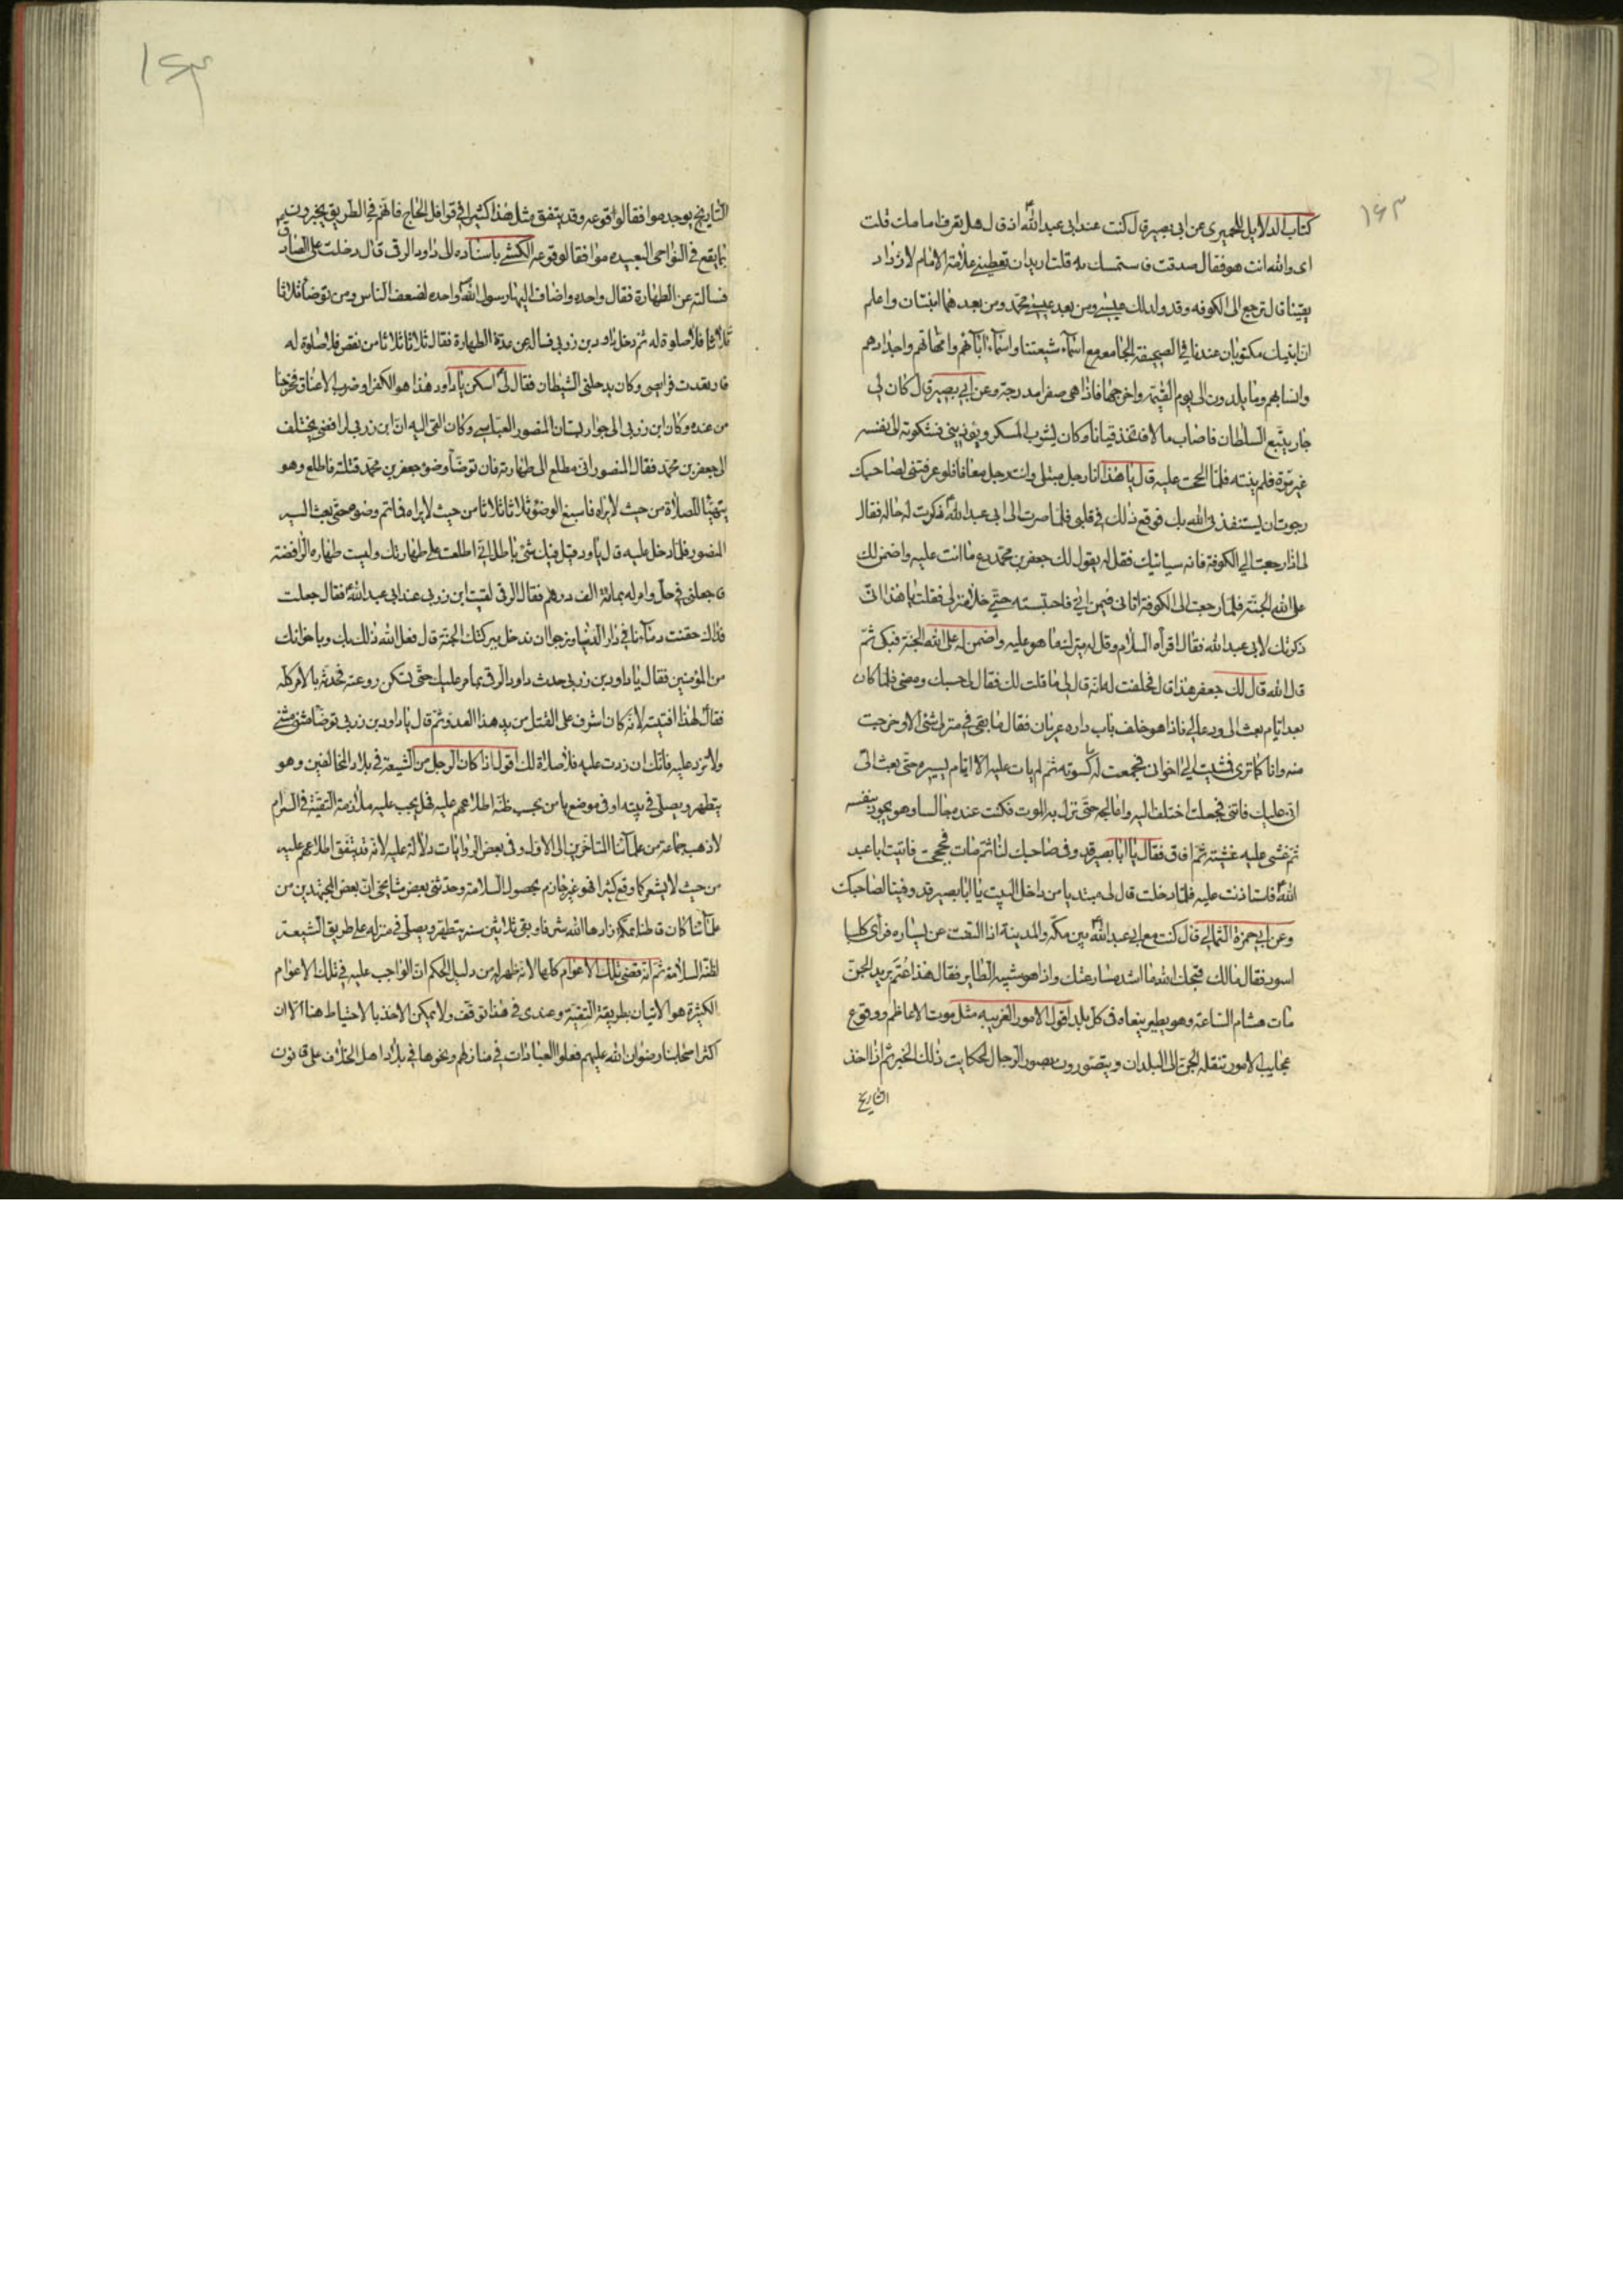 ١٤٣
كتاب الدلايل للحميرى عن ابى بصير قال كنت عند ابى عبد الله ع اذ قال هل تعرف امامك قلت
اى والله انت هو فقال صدقت فاستمسك به قلت اريد ان تعطينى علامة الامام لازداد
يقينا قال ترجع الى الكوفه وقد ولد لك عيسى ومن بعد عيسى محمد ومن بعدهما ابنتان واعلم
ان ابنيك مكتوبان عندنا فى الصحيفة الجامعه مع اسمآء شيعتنا واسمآء ابآئهم وامهاتهم واجدادهم
وانسابهم وما يلدون الى يوم القيمة واخرجها فاذا هى صفرا مدرجة وعن ابى بصير قال كان لى
جار يتبع السلطان فاصاب مالا فاتخذ قيانا وكان يشرب المسكر ويوذينى فشكوته الى نفسه
غير مرة فلم ينته فلما الححت عليه قال يا هذا انا رجل مبتلى وانت رجل معافا فلو عرفتنى لصاحبك
رجوت ان يستنقذنى الله بك فوقع ذلك فى قلبى فلما صرت الى ابى عبد الله ع ذكرت له حاله فقال
لى اذا رجعت الى الكوفة فانه سياتيك فقل له يقول لك جعفر بن محمد دع ما انت عليه واضمن لك
على الله الجنة فلما رجعت الى الكوفة اتانى فيمن اتى فاحتبسته حتى خلا منزلى فقلت يا هذا انى
ذكرتك لابى عبد الله فقال اقرأه السلام وقل له يترك ما هو عليه واضمن له على الله الجنة فبكى ثم
قال الله قال لك جعفر هذا قال فحلفت له انه قال لى ما قلت لك فقال لى حسبك ومضى فلما كان
بعد ايام بعث الى ودعانى فاذا هو خلف باب داره عريان فقال ما بقى فى منزلى شئ الا وخرجت
منه وانا كما ترى فمشيت الى اخوانى فجمعت له كسوته ثم لم يات عليه الا ايام يسيره حتى بعث الى
انى عليل فاتنى فجعلت اختلف اليه واعالجه حتى نزل به الموت فكنت عنده جالسا وهو يجود بنفسه
ثم غشى عليه غشية ثم افاق فقال يا ابا بصير قد وفى صاحبك لنا ثم مات فحججت فاتيت ابا عبد
الله ع فاستاذنت عليه فلما دخلت قال لى مبتديا من داخل البيت يا ابا بصير قد وفينا لصاحبك
وعن ابى حمزة الثمالى قال كنت مع ابى عبد الله ع بين مكة والمدينة اذا التفت عن يساره فرأى كلبا
اسود فقال مالك قبحك الله ما اشد مسارعتك واذا هو شبيه الطاير فقال هذا عثم بريد الجن
مات هشام الساعة وهو يطير ينعاه فى كل بلد اقول الامور الغريبه مثل موت الاعاظم ووقوع
عجايب الامور تنقله الجن الى البلدان ويتصورون بصور الرجال لحكايت ذلك الخبر ثم اذا اخذ
التاريخ
١٤٣
التاريخ يوجد موافقا لوقوعه وقد يتفق مثل هذا كثيرا فى قوافل الحاج فانهم فى الطريق يخبرون
بما يقع فى النواحى البعيده موافقا لوقوعه الكشى باسناده الى داود الرقى قال دخلت على الصادق
فسالته عن الطهارة فقال واحده واضاف اليها رسول الله واحده لضعف الناس ومن توضأ ثلاثا
ثلاثا فلا صلوة له ثم دخل داود بن زربى فساله عن عدة الطهارة فقال ثلاثا ثلاثا من نقص فلا صلوة له
فارتعدت فرايصى وكان يدخلنى الشيطان فقال لى اسكن يا داود هذا هو الكفر او ضرب الاعناق فخرجنا
من عنده وكان ابن زربى الى جوار بستان المنصور العباسى وكان القى اليه ان ابن زربى رافضى يختلف
الى جعفر بن محمد فقال المنصور انى مطلع الى طهارته فان توضأ وضوء جعفر بن محمد قتلته فاطلع وهو
يتهيئا للصلاة من حيث لا يراه فاسبغ الوضوء ثلاثا ثلاثا من حيث لا يراه فما تم وضوءه حتى بعث اليه
المنصور فلما دخل عليه قال يا داود قيل فيك شئ باطل انى اطلعت على طهارتك وليست طهاره الرافضة
فاجعلنى فى حل وامر له بمائة الف درهم فقال الرقى لقيت ابن زربى عند ابى عبد الله ع فقال جعلت
فداك حقنت دمآءنا فى دار الدنيا ونرجوا ان ندخل ببركتك الجنة قال فعل الله ذلك بك وباخوانك
من المؤمنين فقال يا داود بن زربى حدث داود الرقى بما مر عليك حتى تسكن روعته فحدثه بالامر كله
فقال لهذا افتيته لانه كان اشرف على القتل من يد هذا العدو ثم قال يا داود بن زربى توضأ مثنى مثنى
ولا تزد عليه فانك ان زدت عليه فلا صلاة لك اقول اذا كان الرجل من الشيعة فى بلاد المخالفين وهو
يتطهر ويصلى فى بيته او فى موضع يامن بحسب ظنه اطلاعهم عليه فهل يجب عليه ملازمة التقية فى
لا ذهب جماعة من علمآئنا المتاخرين الى الاول وفى بعض الروايات دلالة عليه لانه قد يتفق اطلاعهم عليه
من حيث لا يشعر كما وقع كثيرا فهو غير جازم بحصول السلامة وحدثنى بعض مشايخى ان بعض المجتهدين من
علمآئنا كان قاطنا بمكة زادها الله شرفا وبقى ثلاثين سنه يتطهر ويصلى فى منزله على طريق الشيعة
لظنه السلامة ثم انه قضى تلك الاعوام كلها لانه ظهر له من دليل الحكم ان الواجب عليه فى تلك الاعوام
الكثيرة هو الاتيان بطريقة التقية وعندى فى هذا توقف ولا يمكن الاخذ بالاحتياط هنا الا ان
اكثر اصحابنا رضوان الله عليهم فعلوا العبادات فى منازلهم ونحوها فى بلاد اهل الخلاف على قانون